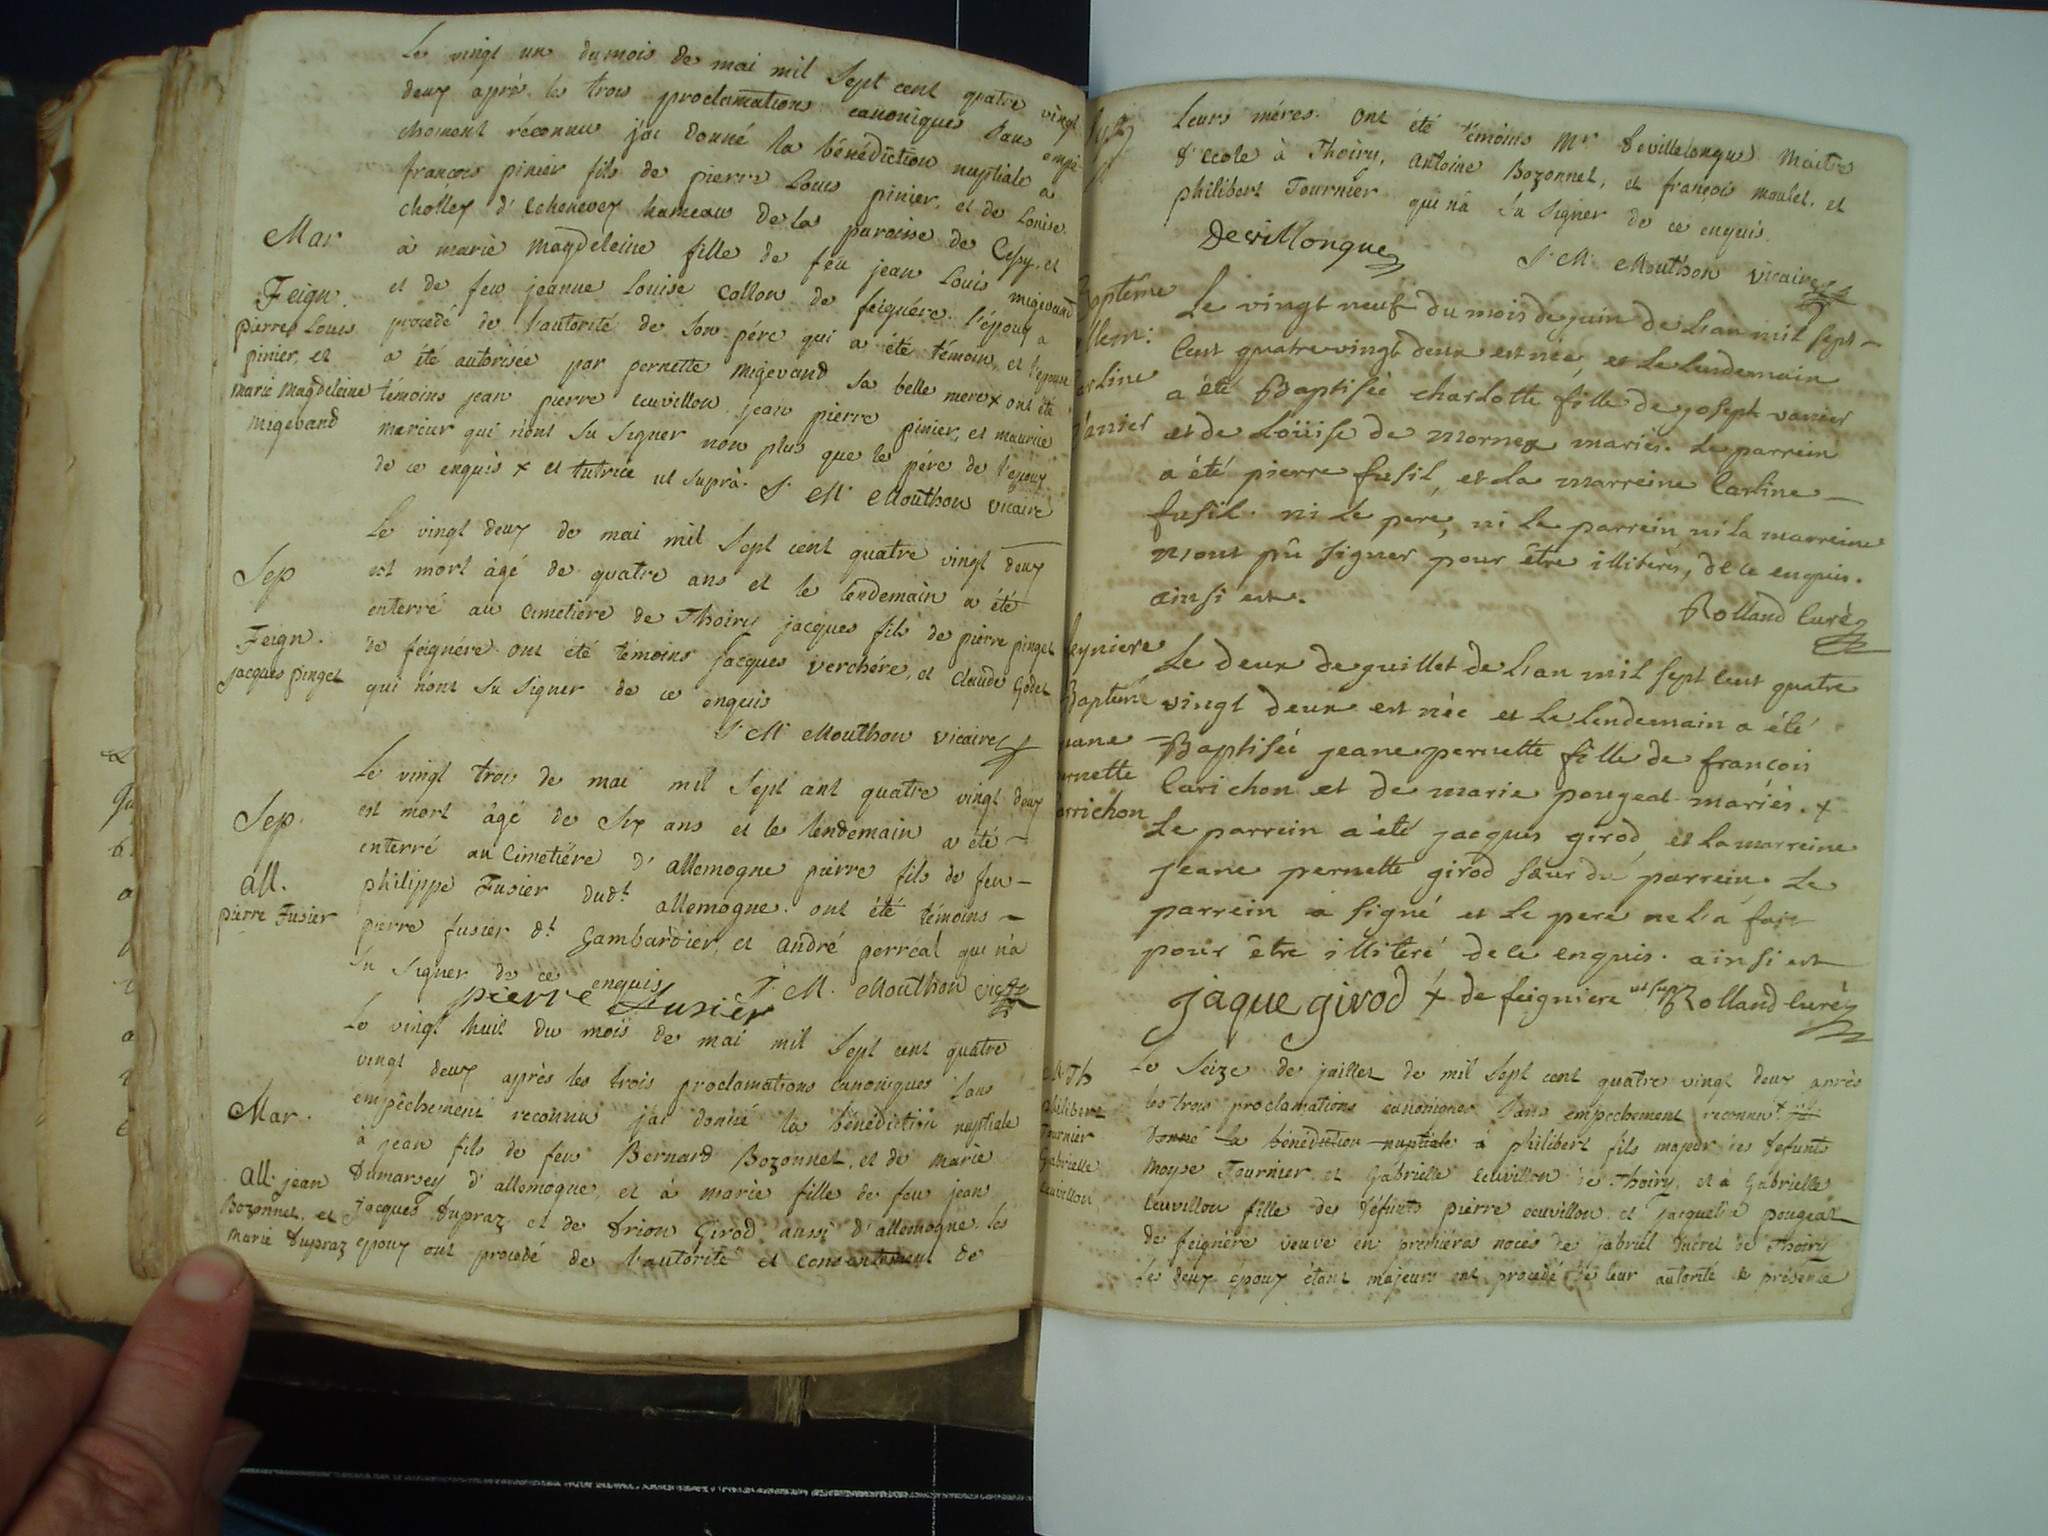 Le vingt un du mois de mai mil Sept cent quatre vingt
deux après les trois proclamations canoniques Sans empê
chement réconnu j'ai donné la bénédiction nuptiale a
francois pinier fils de pierre Louis pinier, et de Louise
cholley d'Echenevey hameau de la paroisse de Cessy, et
à marie magdeleine fille de feu jean Louis migevand
et de feu jeanne Louise collon de feigniére. l'époux a
procédé de l'autorité de Son pére qui a été témoin, et l'épouse
a été autorisée par pernette migevand sa belle mere x ont été
témoins jean pierre Cuvillon jean pierre pinier, et maurice
mercier qui n'ont Su Signer non plus que le pére de l'époux
de ce enquis x et tutrice ut suprà. J. M. Mouthon vicaire
Mar
Feign.
pierre Louis
pinier, et
marie magdeleine
migevand
Le vingt deux de mai mil Sept cent quatre vingt deux
est mort âgé de quatre ans et le lendemain a été
enterré au cimetiére de Thoiry jacques fils de pierre pinget
de feigniére ont été témoins jacques verchére, et claude Godet
qui n'ont Su Signer de ce enquis
J. M. Mouthon vicaire
Sep
Feign.
jacques pinget
Le vingt trois de mai mil Sept ant quatre vingt deux
est mort âgé de Six ans et le lendemain a été
enterré au Cimetiére d'allemogne pierre fils de feu
philippe Fusier dudt. allemogne. ont été témoins
pierre fusier dt. Gambardier, et andré perréal qui n'a
Su Signer de ce enquis J. M. Mouthon vic
pierre Fusier
Sep.
all.
pierre Fusier
Le vingt huit du mois de mai mil Sept cent quatre
vingt deux après les trois proclamations canoniques Sans
empêchement reconnu j'ai donné la bénédiction nuptiale
à jean fils de feu Bernard Bozonnet, et de marie
Dumarsey d'allemogne, et à marie fille de feu jean
jacques Dupraz et de Drion Girod aussi d'allemogne. les
epoux ont procedé de l'autorité et consentement de
Mar.
all. jean
Bozonnet, et
marie Dupraz
Leurs méres. Ont été témoins Mr. Devillelongue Maitre
d'Ecole à Thoiry, Antoine Bozonnet, et françois moulet, et
philibert Tournier qui n'a Su Signer de ce enquis.
Devillongue J. M. Mouthon vicaire
Baptême
allem:
Carline
Vanier
Le vingt neuf du mois de juin de L'an mil sept
Cent quatrevingt deux est née, et Le Lendemain
a été Baptisée charlotte fille de joseph vanier
et de Loüise de mornex mariés. Le parrein
a été pierre fusil, et La marreine Carline
fusil. ni Le pere, ni Le parrein ni la marreine
n'ont pû signer pour être illiterés, de ce enquis.
ainsi est.
Rolland Curé
feyniere
Baptême
jeane
pernette
Carrichon
Le deux de juillet de L'an mil sept Cent quatre
vingt deux est née et Le Lendemain a été
Baptisée jeane pernette fille de francois
Carichon et de marie pougeat mariés. x
Le parrein a été jacques girod, et La marreine
jeane pernette girod sœur du parrein. Le
parrein a signé et Le pere ne L'a fait
pour être illiteré de ce enquis. ainsi est
jaque girod x de feigniere ut sup Rolland Curé
M. Th
philibert
Tournier
Gabrielle
Cuvillon
Le Seize de juillet de mil Sept cent quatre vingt deux après
les trois proclamations canoniques Sans empechement reconnu x
donné la bénédiction nuptiale à philibert fils majeur des defunts
moyse Tournier et Gabrielle Cuvillon de Thoiry, et à Gabrielle
Cuvillon fille des défunts pierre cuvillon et jacqueline pougeat
de feigniére veuve en premiéres noces de gabriel Ducret de Thoiry
Les deux époux étant majeurs ont procedé de leur autorité & présence